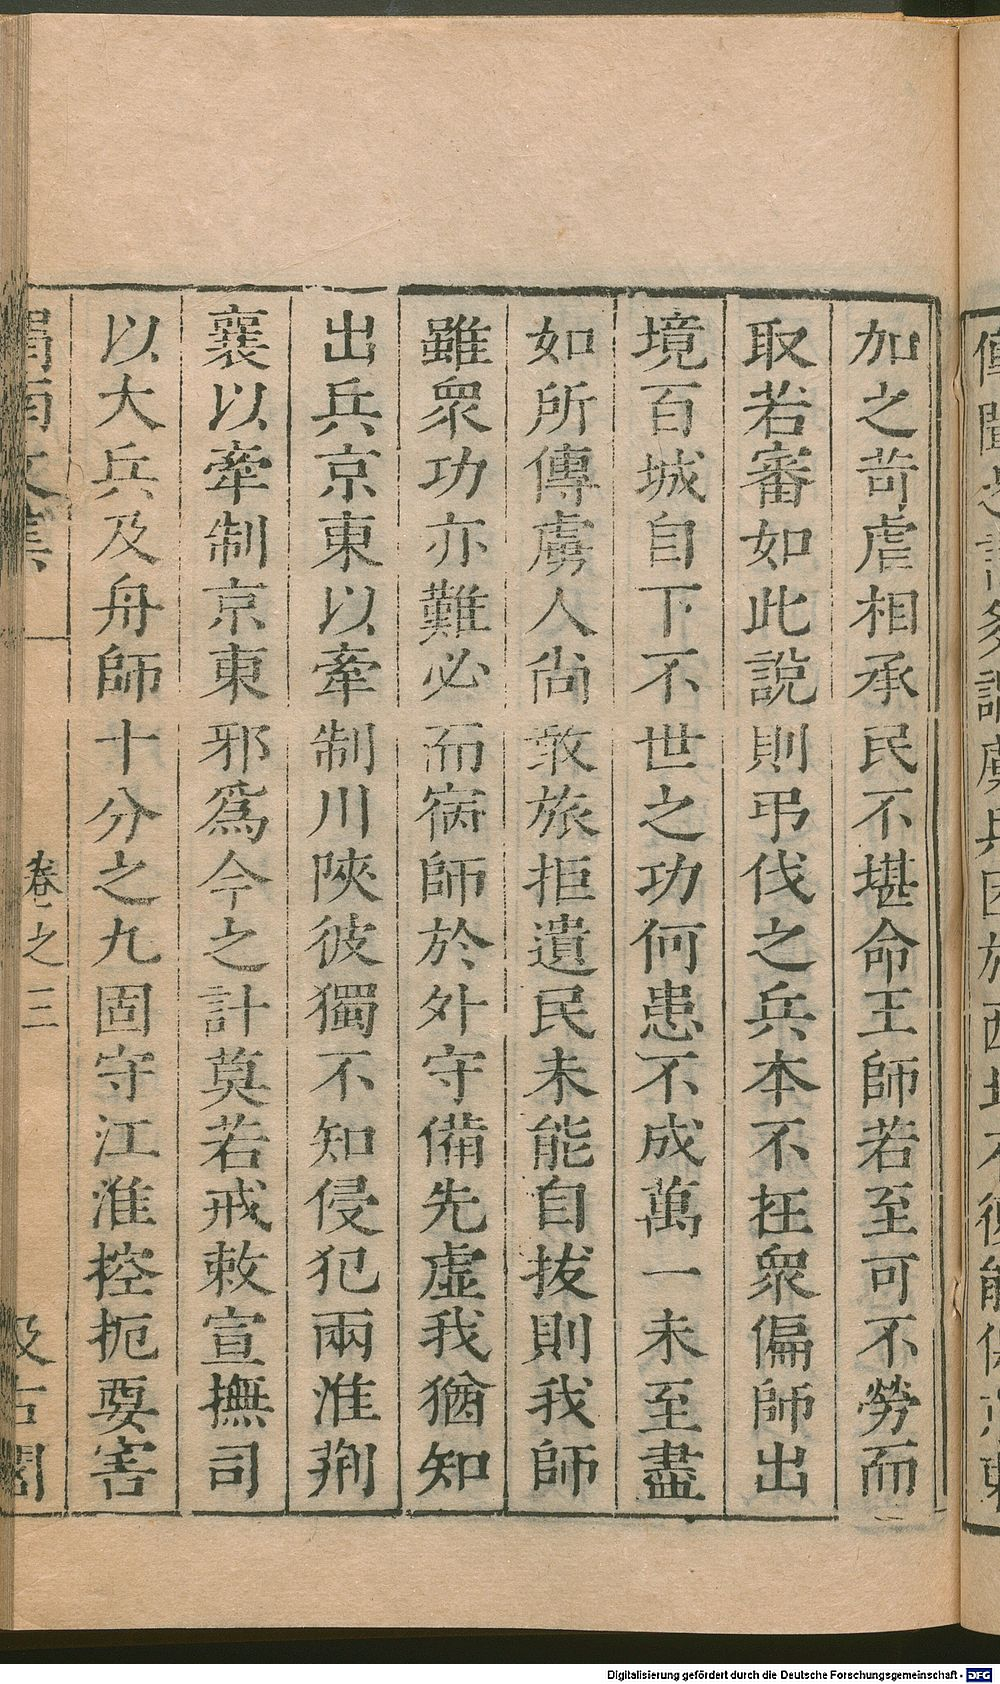 加之苛虐相承民不堪命王師若至可不勞而
取若審如此說則弔伐之兵本不在衆偏師出
境百城自下不世之功何患不成萬一未至盡
如所傳虜人尚敢旅拒遺民未能自拔則我師
雖衆功亦難必而宿師於外守備先虛我猶知
出兵京東以牽制川陝彼獨不知侵犯兩淮荆
襄以牽制京東邪爲今之計莫若戒敕宣撫司
以大兵及舟師十分之九固守江淮控扼要害
渭南文集 卷之三 汲古閣
Digitalisierung gefördert durch die Deutsche Forschungsgemeinschaft - DFG